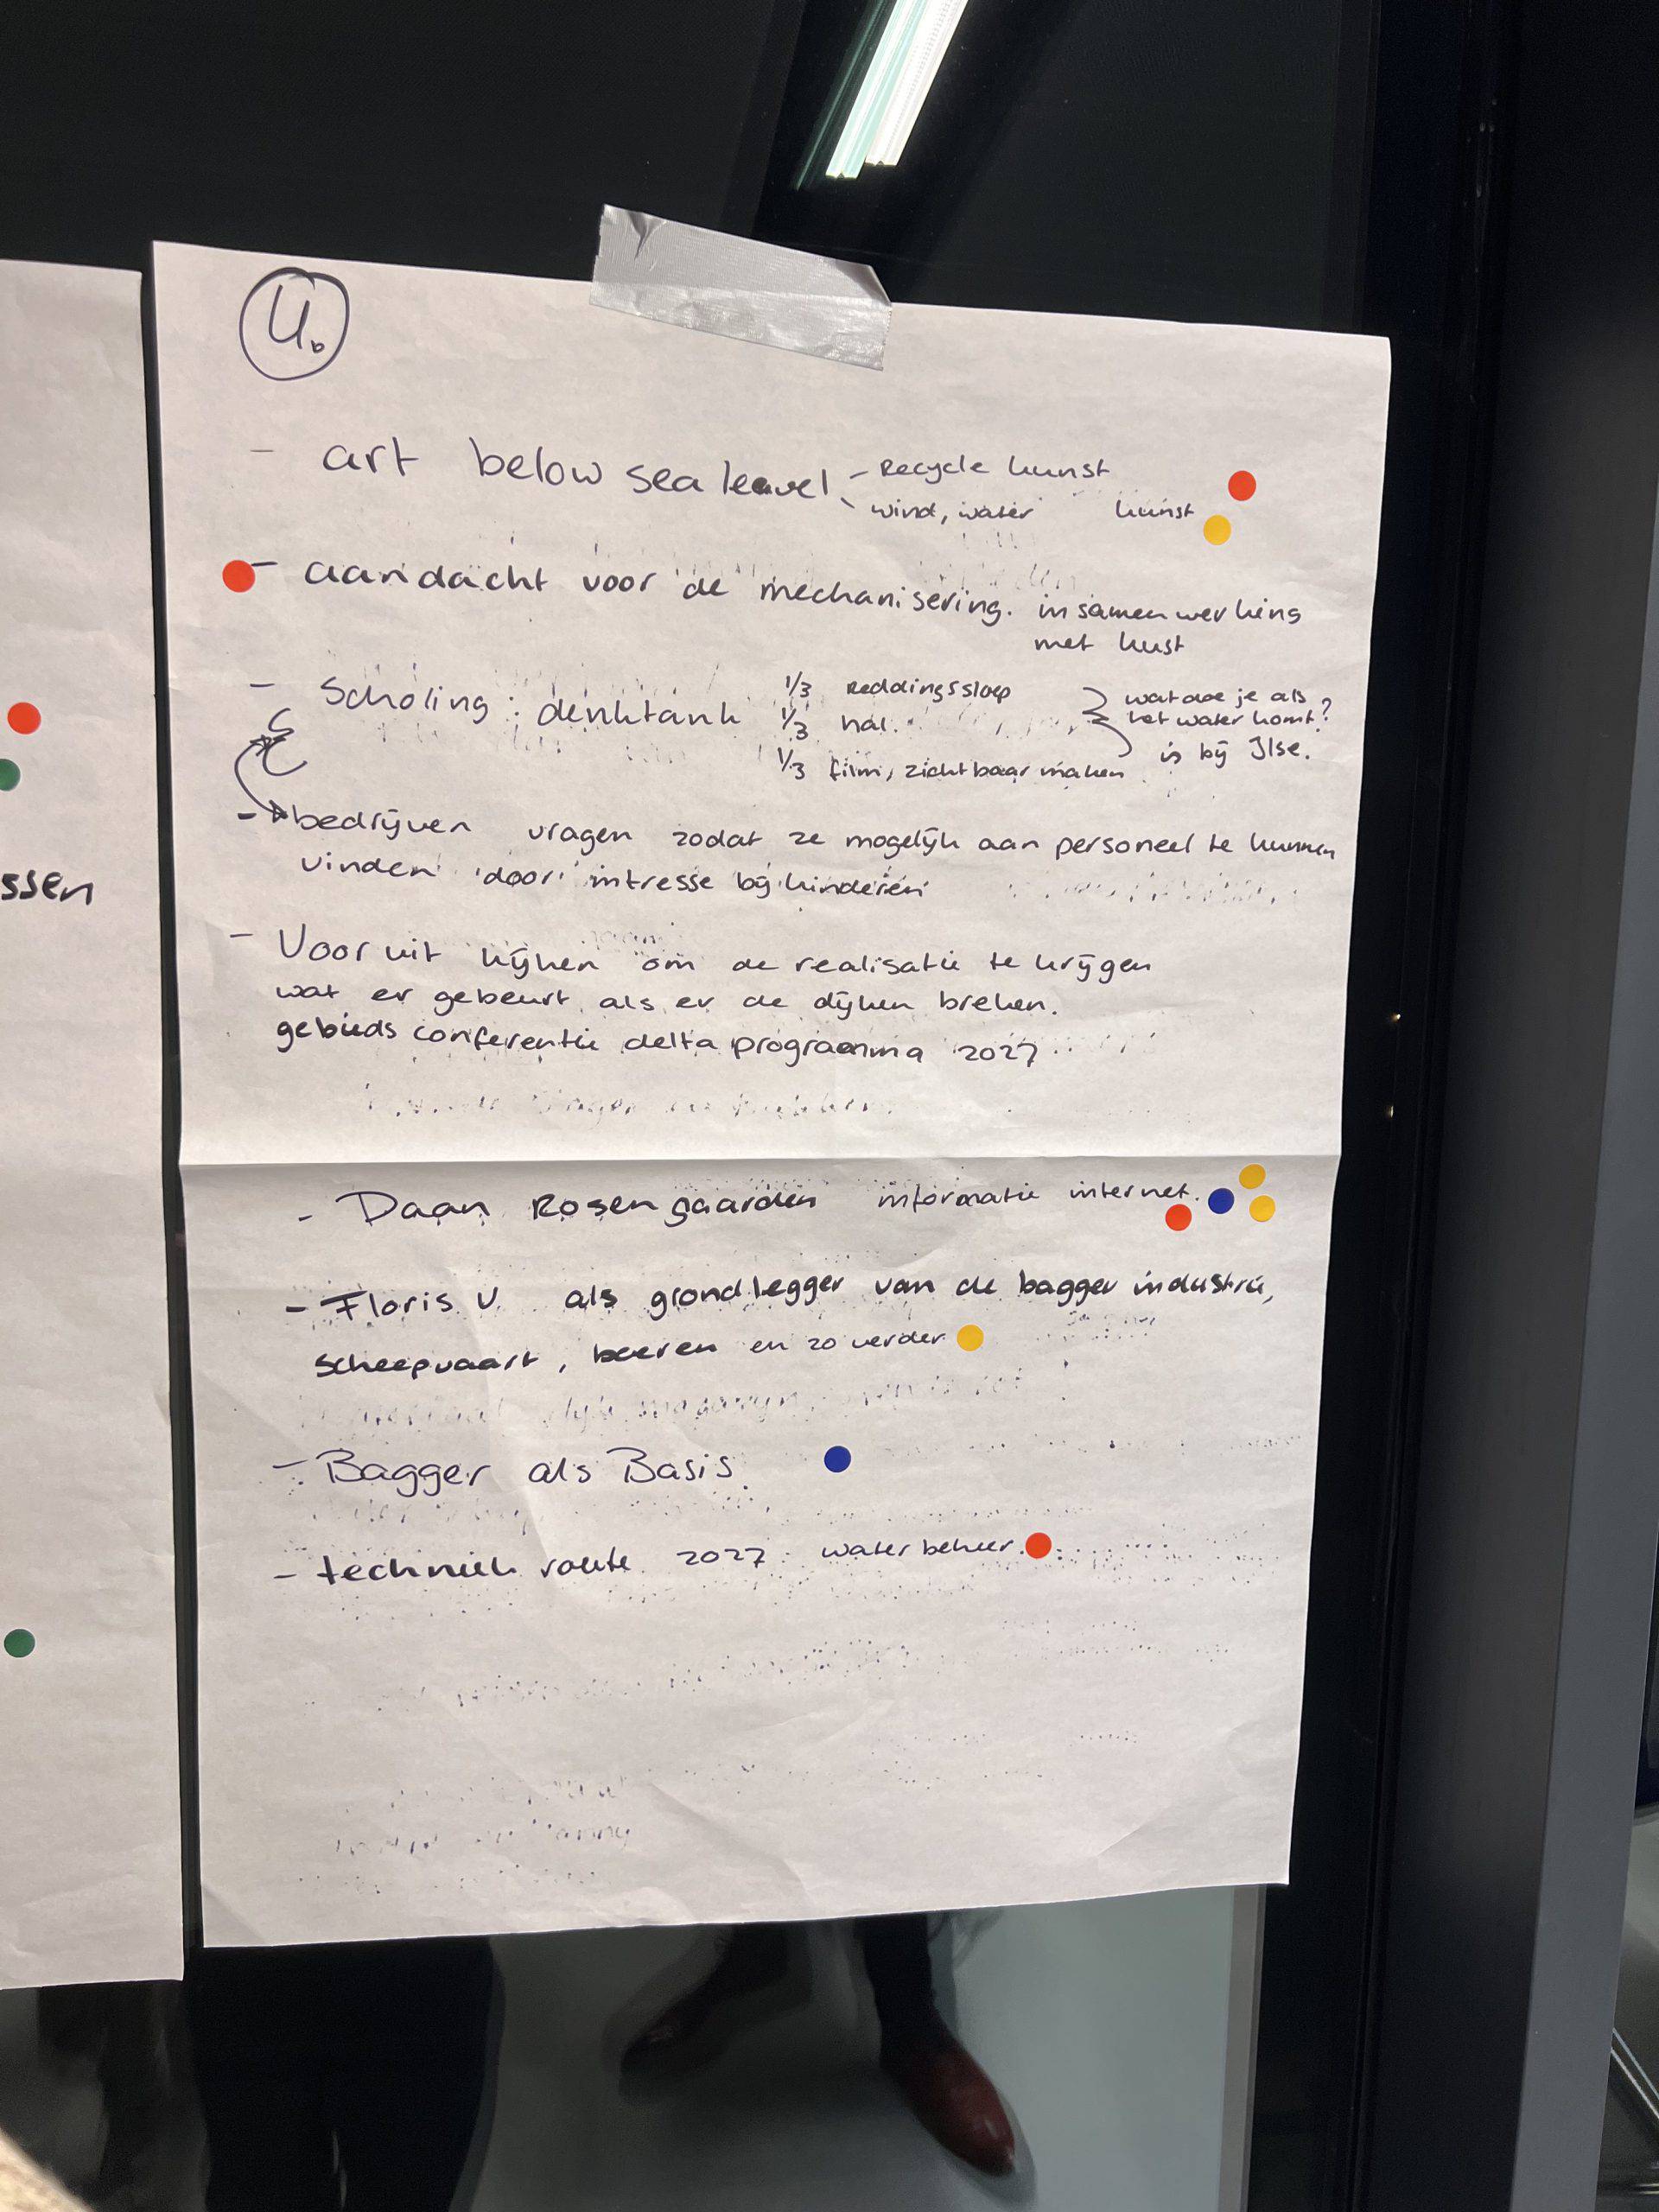 ssen
4b
- art below sea leavel - Recycle kunst
wind, water kunst
- aandacht voor de mechanisering. in samenwerking
met kust
- Scholing : denktank 1/3 Reddingssloep
1/3 nal.
1/3 film, zichtbaar maken
wat doe je als
het water komt?
is bij Ilse.
- bedrijven vragen zodat ze mogelijk aan personeel te kunnen
vinden door intresse bij kinderen
- Vooruit kijken om de realisatie te krijgen
wat er gebeurt als er de dijken breken.
gebieds conferentie delta programma 2027
- Daan Rosengaarden informatie internet.
- Floris V als grondlegger van de bagger industrie,
scheepvaart, boeren en zo verder
- Bagger als Basis
- techniek route 2027 waterbeheer.